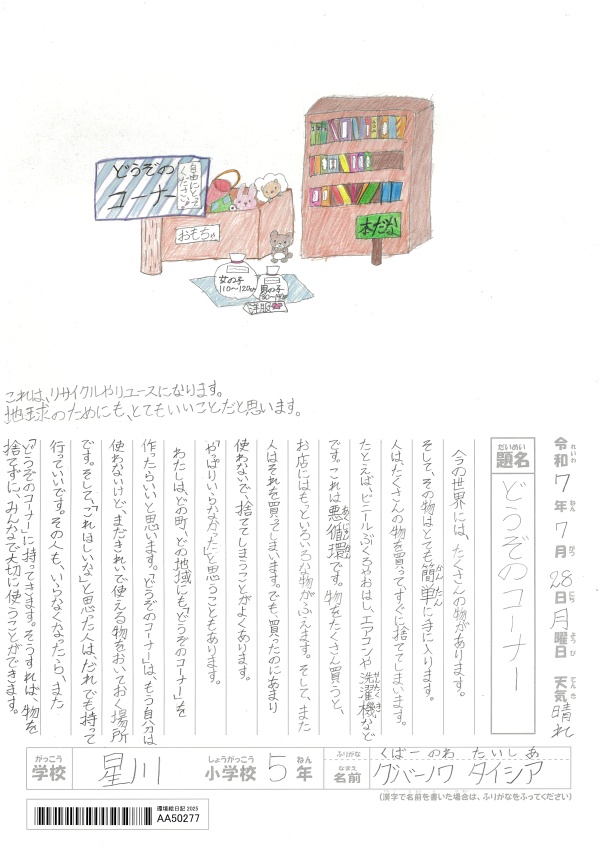 どうぞの
コーナー
自由にとって
ください
おもちゃ
本だな
女の子
110～120cm
男の子
洋服
令和7年7月28日月曜日 天気 晴れ
れいわ ねん がつ にち ようび てんき
だいめい
題名 どうぞのコーナー
今の世界には、たくさんの物があります。
そして、その物はとても簡単に手に入ります。
かんたん
人は、たくさんの物を買ってすぐに捨ててしまいます。
たとえば、ビニールぶくろやおはし、エアコンや洗濯機など
せんたくき
です。これは悪循環です。物をたくさん買うと、
あくじゅんかん
お店にはもっといろいろな物がふえます。そして、また
人はそれを買ってしまいます。でも、買ったのにあまり
使わないで、捨ててしまうことがよくあります。
「やっぱりいらなかった」と思うこともあります。
わたしは、どの町、どの地域にも「どうぞのコーナー」を
作ったらいいと思います。「どうぞのコーナー」は、もう自分は
使わないけど、まだきれいで使える物をおいておく場所
です。そして、「これはいいな」と思った人は、だれでも持って
行っていいです。その人も、いらなくなったら、また
「どうぞのコーナー」に持ってきます。そうすれば、物を
捨てずに、みんなで大切に使うことができます。
これは、リサイクルやリユースになります。
地球のためにも、とてもいいことだと思います。
がっこう しょうがっこう ねん
学校 星川 小学校 5年
ふりがな くばーのわ たいしあ
なまえ
名前 グバーノワ タイシア
(漢字で名前を書いた場合は、ふりがなをふってください)
環境絵日記 2025
AA50277